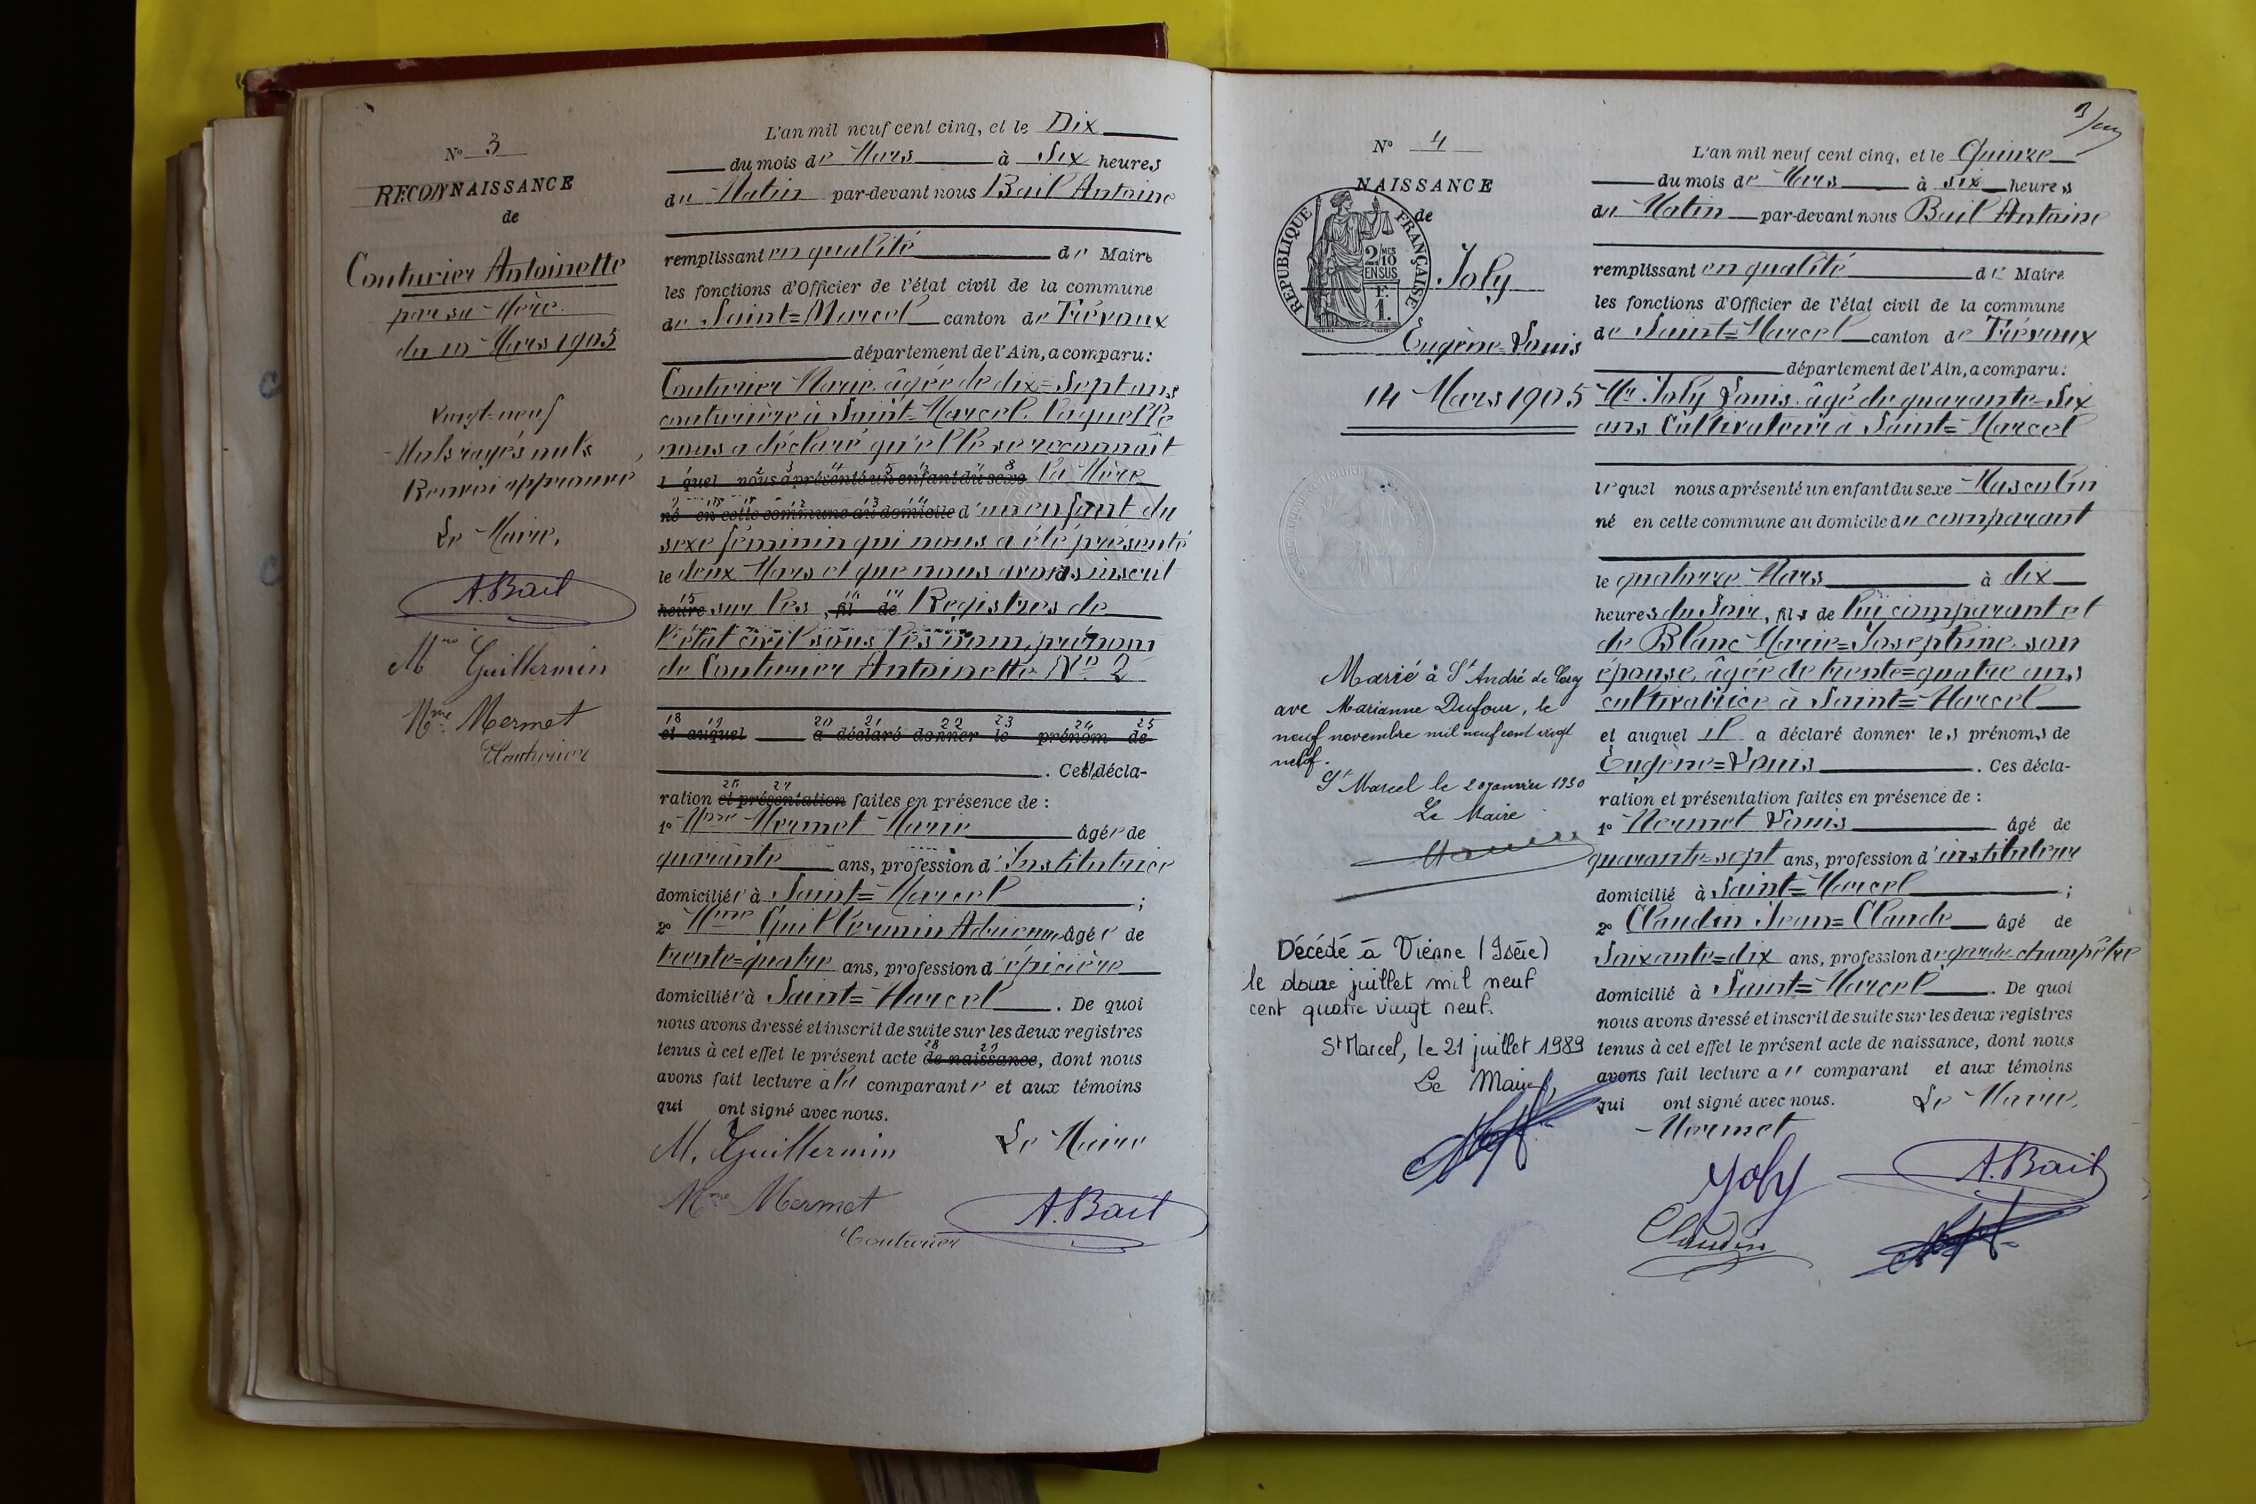 N° 3
RECONNAISSANCE
de
Couturier Antoinette
par sa Mère
du 10 Mars 1905
Vingt-neuf
Mots rayés nuls
Renvoi approuvé
Le Maire,
A. Bail
Mme Guillermin
Mme Mermet
Couturier
L'an mil neuf cent cinq, et le Dix
du mois de Mars à Six heures
du Matin par-devant nous Bail Antoine
remplissant en qualité de Maire
les fonctions d'Officier de l'état civil de la commune
de Saint=Marcel canton de Trévoux
département de l'Ain, a comparu:
Couturier Marie âgée de dix=Sept ans
couturière à Saint=Marcel. laquelle
nous a déclaré qu'elle se reconnaît
1 2 3 4 5 6 7 8
l quel nous a présenté un enfant du sexe la Mère
9 10 11 12 13 14
né en cette commune au domicile d'un enfant du
sexe féminin qui nous a été présenté
le deux Mars et que nous avons inscrit
15
heure sur les, fil de Registres de
l'état civil sous les nom, prénom
de Couturier Antoinette N° 2
18 19 20 21 22 23 24 25
et auquel a déclaré donner le prénom de
. Cette décla-
26 27
ration et présentation faites en présence de :
1° Mme Mermet Marie âgée de
quarante ans, profession d'Institutrice
domiciliée à Saint=Marcel ;
2° Mme Guillermin Adrienne âgée de
trente=quatre ans, profession d'épicière
domiciliée à Saint=Marcel . De quoi
nous avons dressé et inscrit de suite sur les deux registres
28 29
tenus à cet effet le présent acte de naissance, dont nous
avons fait lecture à la comparante et aux témoins
qui ont signé avec nous.
M. Guillermin Le Maire
Mme Mermet A. Bail
Couturier
3
N° 4
NAISSANCE
de
REPUBLIQUE FRANÇAISE
2/10
EN SUS
1 F.
Joly
Eugène=Louis
14 Mars 1905
Marié à St André de Corcy
avec Marianne Dufour, le
neuf novembre mil neuf cent vingt
neuf.
St Marcel le 20 janvier 1930
Le Maire
Décédé à Vienne (Isère)
le douze juillet mil neuf
cent quatre vingt neuf.
St Marcel, le 21 juillet 1989
Le Maire,
L'an mil neuf cent cinq, et le Quinze
du mois de Mars à six heures
du Matin par-devant nous Bail Antoine
remplissant en qualité de Maire
les fonctions d'Officier de l'état civil de la commune
de Saint=Marcel canton de Trévoux
département de l'Ain, a comparu:
Mr Joly Louis âgé de quarante=Six
ans Cultivateur à Saint=Marcel
lequel nous a présenté un enfant du sexe Masculin
né en cette commune au domicile du comparant
le quatorze Mars à dix
heures du Soir, fils de lui comparant et
de Blanc Marie=Josephine son
épouse âgée de trente=quatre ans
cultivatrice à Saint=Marcel
et auquel il a déclaré donner les prénoms de
Eugène=Louis . Ces décla-
ration et présentation faites en présence de :
1° Mermet Louis âgé de
quarante=sept ans, profession d'instituteur
domicilié à Saint=Marcel ;
2° Claudin Jean=Claude âgé de
Soixante=dix ans, profession de garde-champêtre
domicilié à Saint=Marcel . De quoi
nous avons dressé et inscrit de suite sur les deux registres
tenus à cet effet le présent acte de naissance, dont nous
avons fait lecture au comparant et aux témoins
qui ont signé avec nous. Le Maire,
Mermet
Joly A. Bail
Claudin